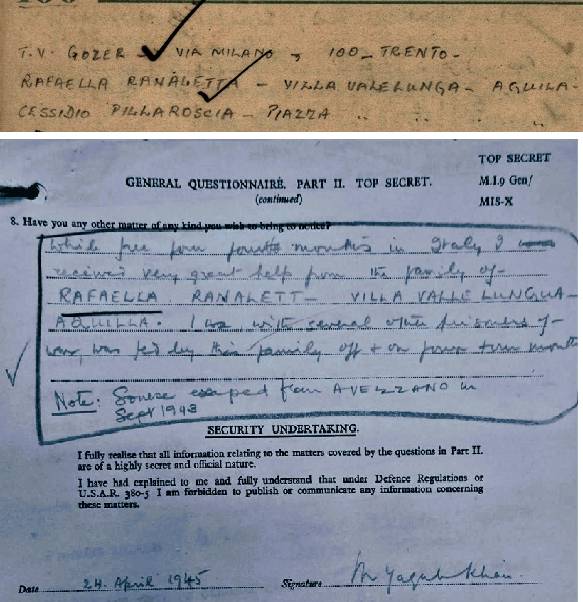 T.V. GOZER - VIA MILANO, 100 - TRENTO -
RAFAELLA RANALETTA - VILLA VALELUNGA - AQUILA -
CESSIDIO PILLAROSCIA - PIAZZA " " "
TOP SECRET
GENERAL QUESTIONNAIRE. PART II. TOP SECRET.
M.I.9 Gen/
(continued)
MIS-X
8. Have you any other matter of any kind you wish to bring to notice?
While free for fourth months in Italy I
received very great help from the family of -
RAFAELLA RANALETT- VILLA VALLE LUNGUA -
AQUILLA. I was with several other prisoners of -
war, was fed by this family off & on for months
Note: Source escaped from AVEZZANO in
Sept 1943
SECURITY UNDERTAKING.
I fully realise that all information relating to the matters covered by the questions in Part II.
are of a highly secret and official nature.
I have had explained to me and fully understand that under Defence Regulations or
U.S.A.R. 380-5 I am forbidden to publish or communicate any information concerning
these matters.
Date 24 April 1945 Signature M Yaqub Khan.